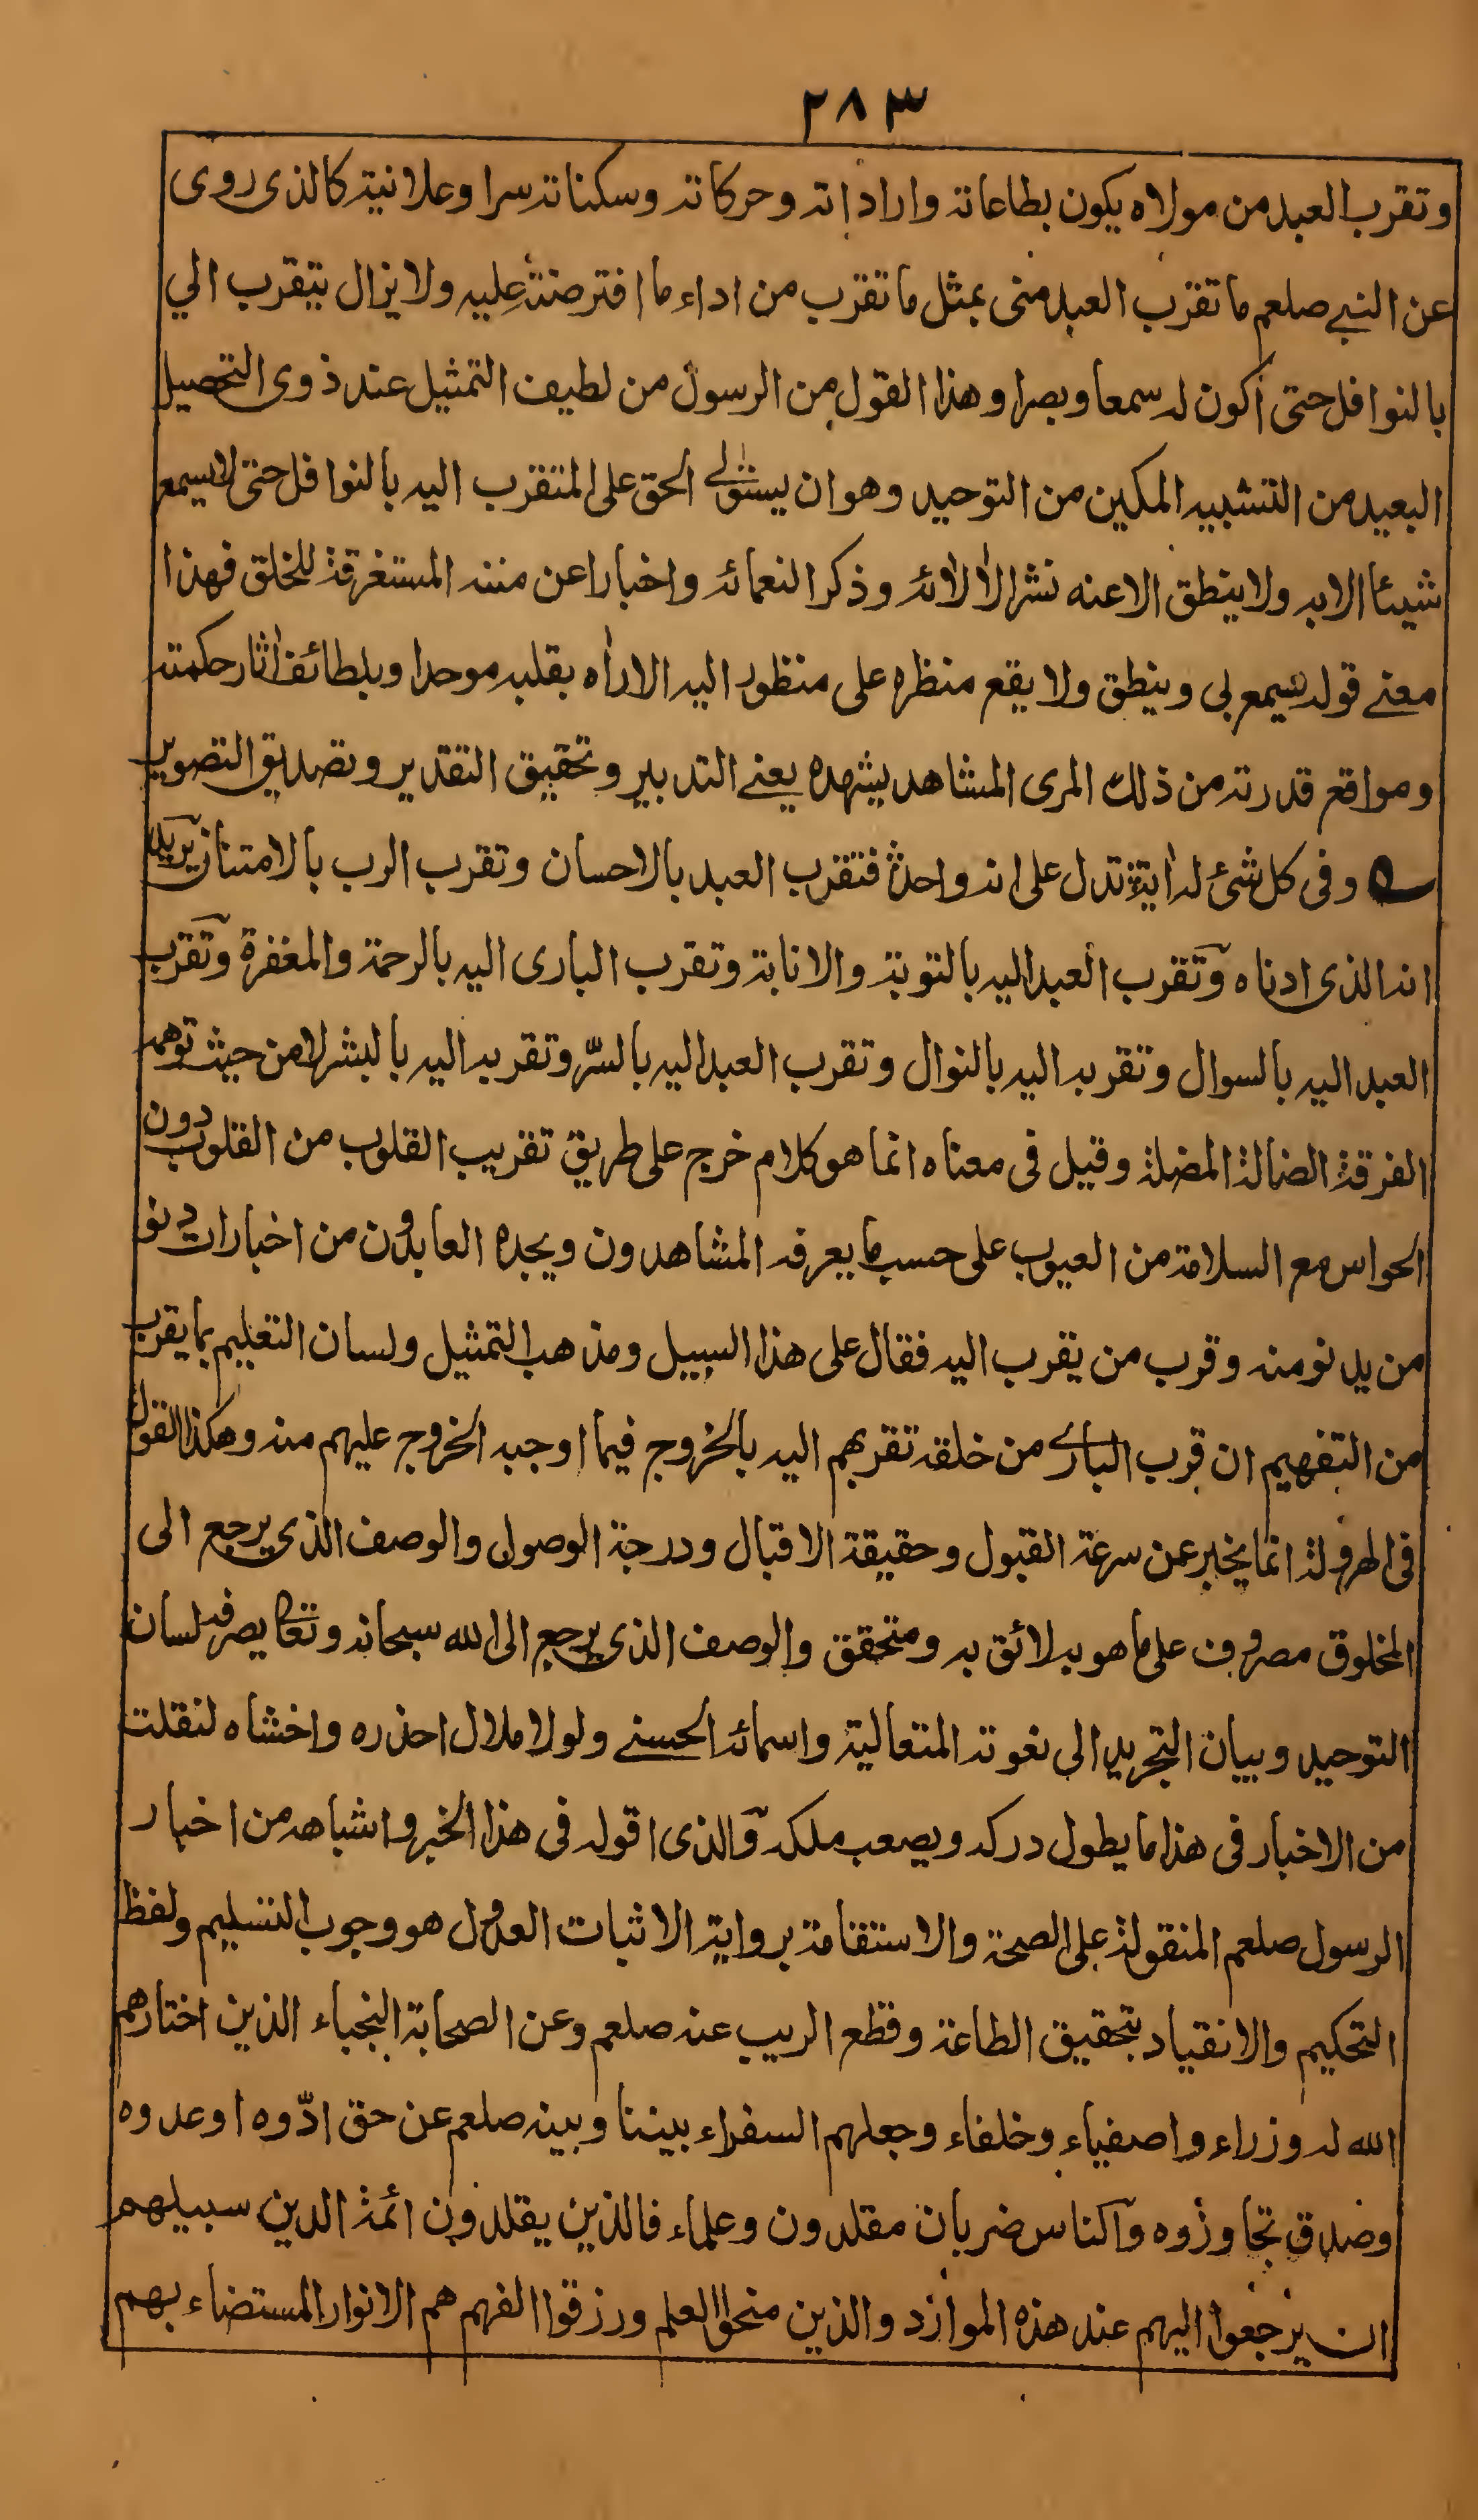 ٢٨٣
وتقرب العبد من مولاه يكون بطاعاته واراداته وحركاته وسكناته سرا وعلانية كالذى روى
عن النبي صلعم ما تقرب العبد منى بمثل ما تقرب من اداء ما افترضته عليه ولا يزال يتقرب الي
بالنوافل حتى أكون له سمعا وبصرا وهذا القول من الرسول من لطيف التمثيل عند ذوى التحصيل
البعيد من التشبيه المكين من التوحيد وهو ان يستولى الحق على المتقرب اليه بالنوافل حتى لا يسمع
شيئا الا به ولا ينطق الا عنه نشرا لالائه وذكرا لنعمائه واخبارا عن مننه المستغرقة للخلق فهذا
معنے قوله يسمع بى وينطق ولا يقع منظره على منظور اليه الا راه بقلبه موحدا وبلطائف اثار حكمته
ومواقع قدرته من ذلك المرى المشاهد يشهده يعنے التدبير وتحقيق التقدير وتصديق التصوير
وفى كل شئ له اية تدل على انه واحد فتقرب العبد بالاحسان وتقرب الرب بالامتنان يريد
انه الذى ادناه وتقرب العبد اليه بالتوبة والانابة وتقرب البارى اليه بالرحمة والمغفرة وتقرب
العبد اليه بالسوال وتقربه اليه بالنوال وتقرب العبد اليه بالسرّ وتقربه اليه بالبشر لا من حيث توهمه
الفرقة الضالة المضلة وقيل فى معناه انما هو كلام خرج على طريق تقريب القلوب من القلوب دون
الحواس مع السلامة من العيوب على حسب ما يعرفه المشاهدون ويجده العابدون من اخبارات دنو
من يدنو منه وقرب من يقرب اليه فقال على هذا السبيل ومذهب التمثيل ولسان التعليم بما يقرب
من التفهيم ان قرب البارے من خلقه تقربهم اليه بالخروج فيما اوجبه الخروج عليهم منه وهكذا القول
فى الهرولة انما يخبر عن سرعة القبول وحقيقة الاقبال ودرجة الوصول والوصف الذى يرجع الى
المخلوق مصروف على ما هو به لائق به ومتحقق والوصف الذى يرجع الى الله سبحانه وتعا يصرفه لسان
التوحيد وبيان التجريد الى نعوته المتعالية واسمائه الحسنے ولولا ملال احذره واخشاه لنقلت
من الاخبار فى هذا ما يطول دركه ويصعب ملكه والذى اقوله فى هذا الخبر واشباهه من اخبار
الرسول صلعم المنقولة على الصحة والاستقامة برواية الاثبات العدول هو وجوب التسليم ولفظ
التحكيم والانقياد بتحقيق الطاعة وقطع الريب عنه صلعم وعن الصحابة النجباء الذين اختارهم
الله له وزراء واصفياء وخلفاء وجعلهم السفراء بيننا وبينه صلعم عن حق ادّوه او عدوه
وصدق تجاوزوه والناس ضربان مقلدون وعلماء فالذين يقلدون ائمة الدين سبيلهم
ان يرجعوا اليهم عند هذه الموارد والذين منحوا العلم ورزقوا الفهم هم الانوار المستضاء بهم